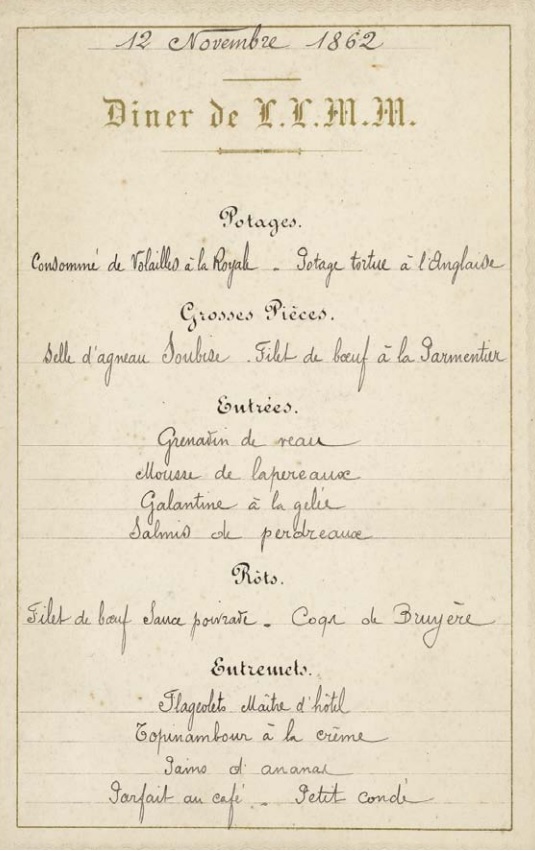 12 Novembre 1862
Diner de L.L.M.M.
Potages.
Consommé de Volailles à la Royale - Potage tortue à l'Anglaise
Grosses Pièces.
Selle d'agneau Soubise - Filet de bœuf à la Parmentier
Entrées.
Grenadin de veau
Mousse de lapereaux
Galantine à la gelée
Salmis de perdreaux
Rôts.
Filet de bœuf Sauce poivrade - Coqs de Bruyère
Entremets.
Flageolets Maître d'hôtel
Topinambour à la crème
Pains d'ananas
Parfait au café - Petit condé